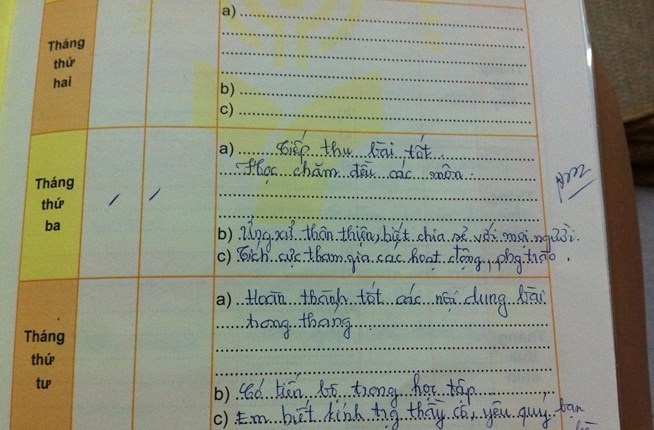 Tháng
thứ
hai
a)
b)
c)
Tháng
thứ
ba
a) Tiếp thu bài tốt.
Học chăm đều các môn.
b) Ứng xử thân thiện, biết chia sẻ với mọi người.
c) Tích cực tham gia các hoạt động, phg trào.
Tháng
thứ
tư
a) Hoàn thành tốt các nội dung bài
trong tháng
b) Có tiến bộ trong học tập
c) Em biết kính trg thầy cô, yêu quý bạn